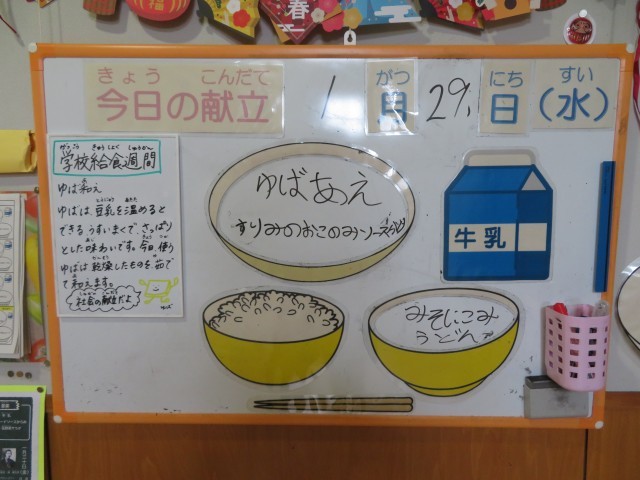 春
福
きょう こんだて
今日の献立
1 がつ 月 29, にち 日 すい (水)
がっこう きゅうしょく しゅうかん
学校給食週間
ゆば和え
ゆばは、豆乳を温めると
できる、うすいまくで、さっぱり
とした味わいです。今日、使う
ゆばは、乾燥したものを、茹で
て、和えます。
社会の献立だよ
ゆばあえ
すりみのおこのみソース
牛乳
みそにこみ
うどん